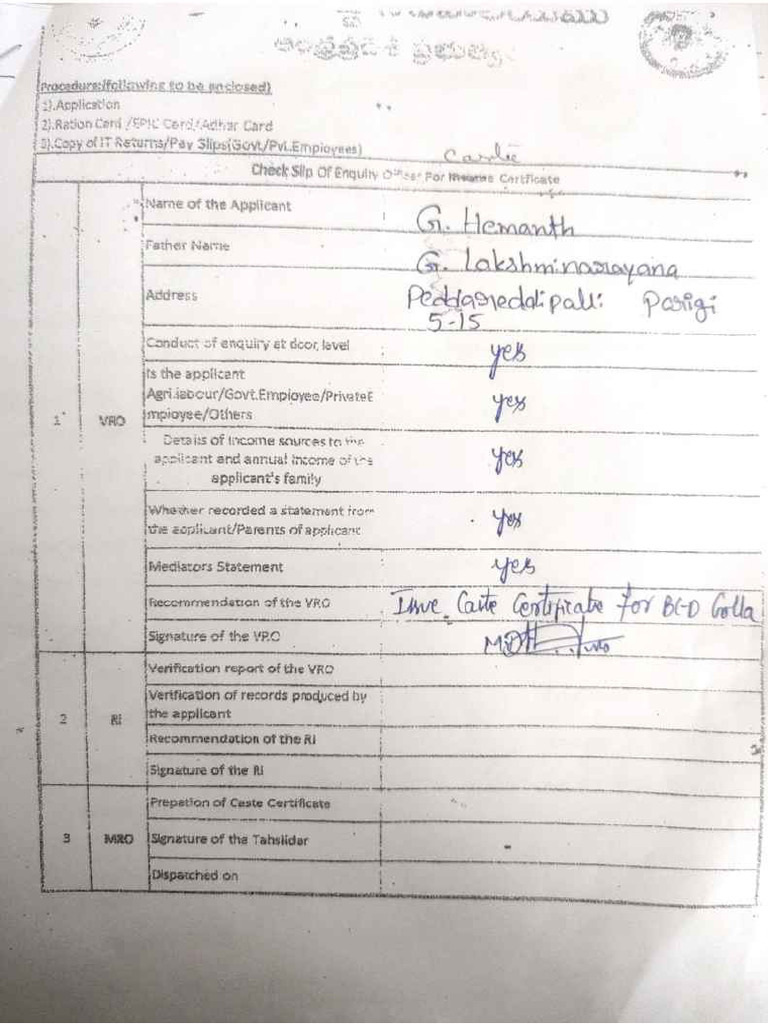 ఆంధ్రప్రదేశ్ ప్రభుత్వం
Procedure:(following to be enclosed)
1).Application
2).Ration Card /EPIC Card/Adhar Card
3).Copy of IT Returns/Pay Slips(Govt/Pvt.Employees)
Caste
Check Slip Of Enquiry Officer For Income Certficate
Name of the Applicant G. Hemanth
Father Name G. Lakshminarayana
Address Peddareddipalli Parigi
5-15
Conduct of enquiry at door level yes
Is the applicant
Agri.labour/Govt.Employee/PrivateE
mployee/Others yes
1 VRO
Details of income sources to the
applicant and annual income of the
applicant's family yes
Whether recorded a statement from
the applicant/Parents of applicant yes
Mediators Statement yes
Recommendation of the VRO Caste Certificate for BC-D Golla
Signature of the VRO
Verification report of the VRO
Verification of records produced by
the applicant
2 RI
Recommendation of the RI
Signature of the RI
Prepation of Caste Certificate
3 MRO Signature of the Tahslidar
Dispatched on